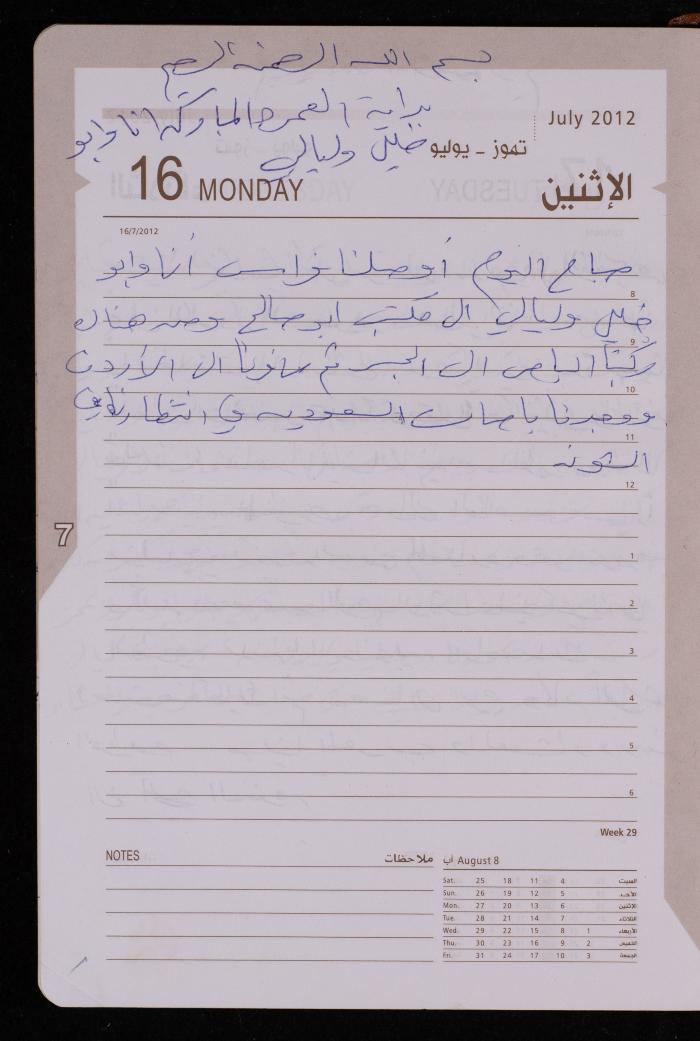 بسم الله الرحمن الرحيم
بداية العمرة المباركة انا وابو
خليل وليالي
July 2012
تموز - يوليو
16 MONDAY
الإثنين
16/7/2012
صباح اليوم أوصلنا فراس أنا وابو
8
خليل وليالي الى مكتب ابو صالح ومن هناك
9
ركبنا الباص الى الجسر ثم سافرنا الى الأردن
10
ووجدنا باصات السعودية في انتظارنا في
11
الشونه
12
7
1
2
3
4
5
6
Week 29
NOTES ملاحظات
آب August 8
Sat. 25 18 11 4 السبت
Sun. 26 19 12 5 الأحد
Mon. 27 20 13 6 الإثنين
Tue. 28 21 14 7 الثلاثاء
Wed. 29 22 15 8 1 الأربعاء
Thu. 30 23 16 9 2 الخميس
Fri. 31 24 17 10 3 الجمعة